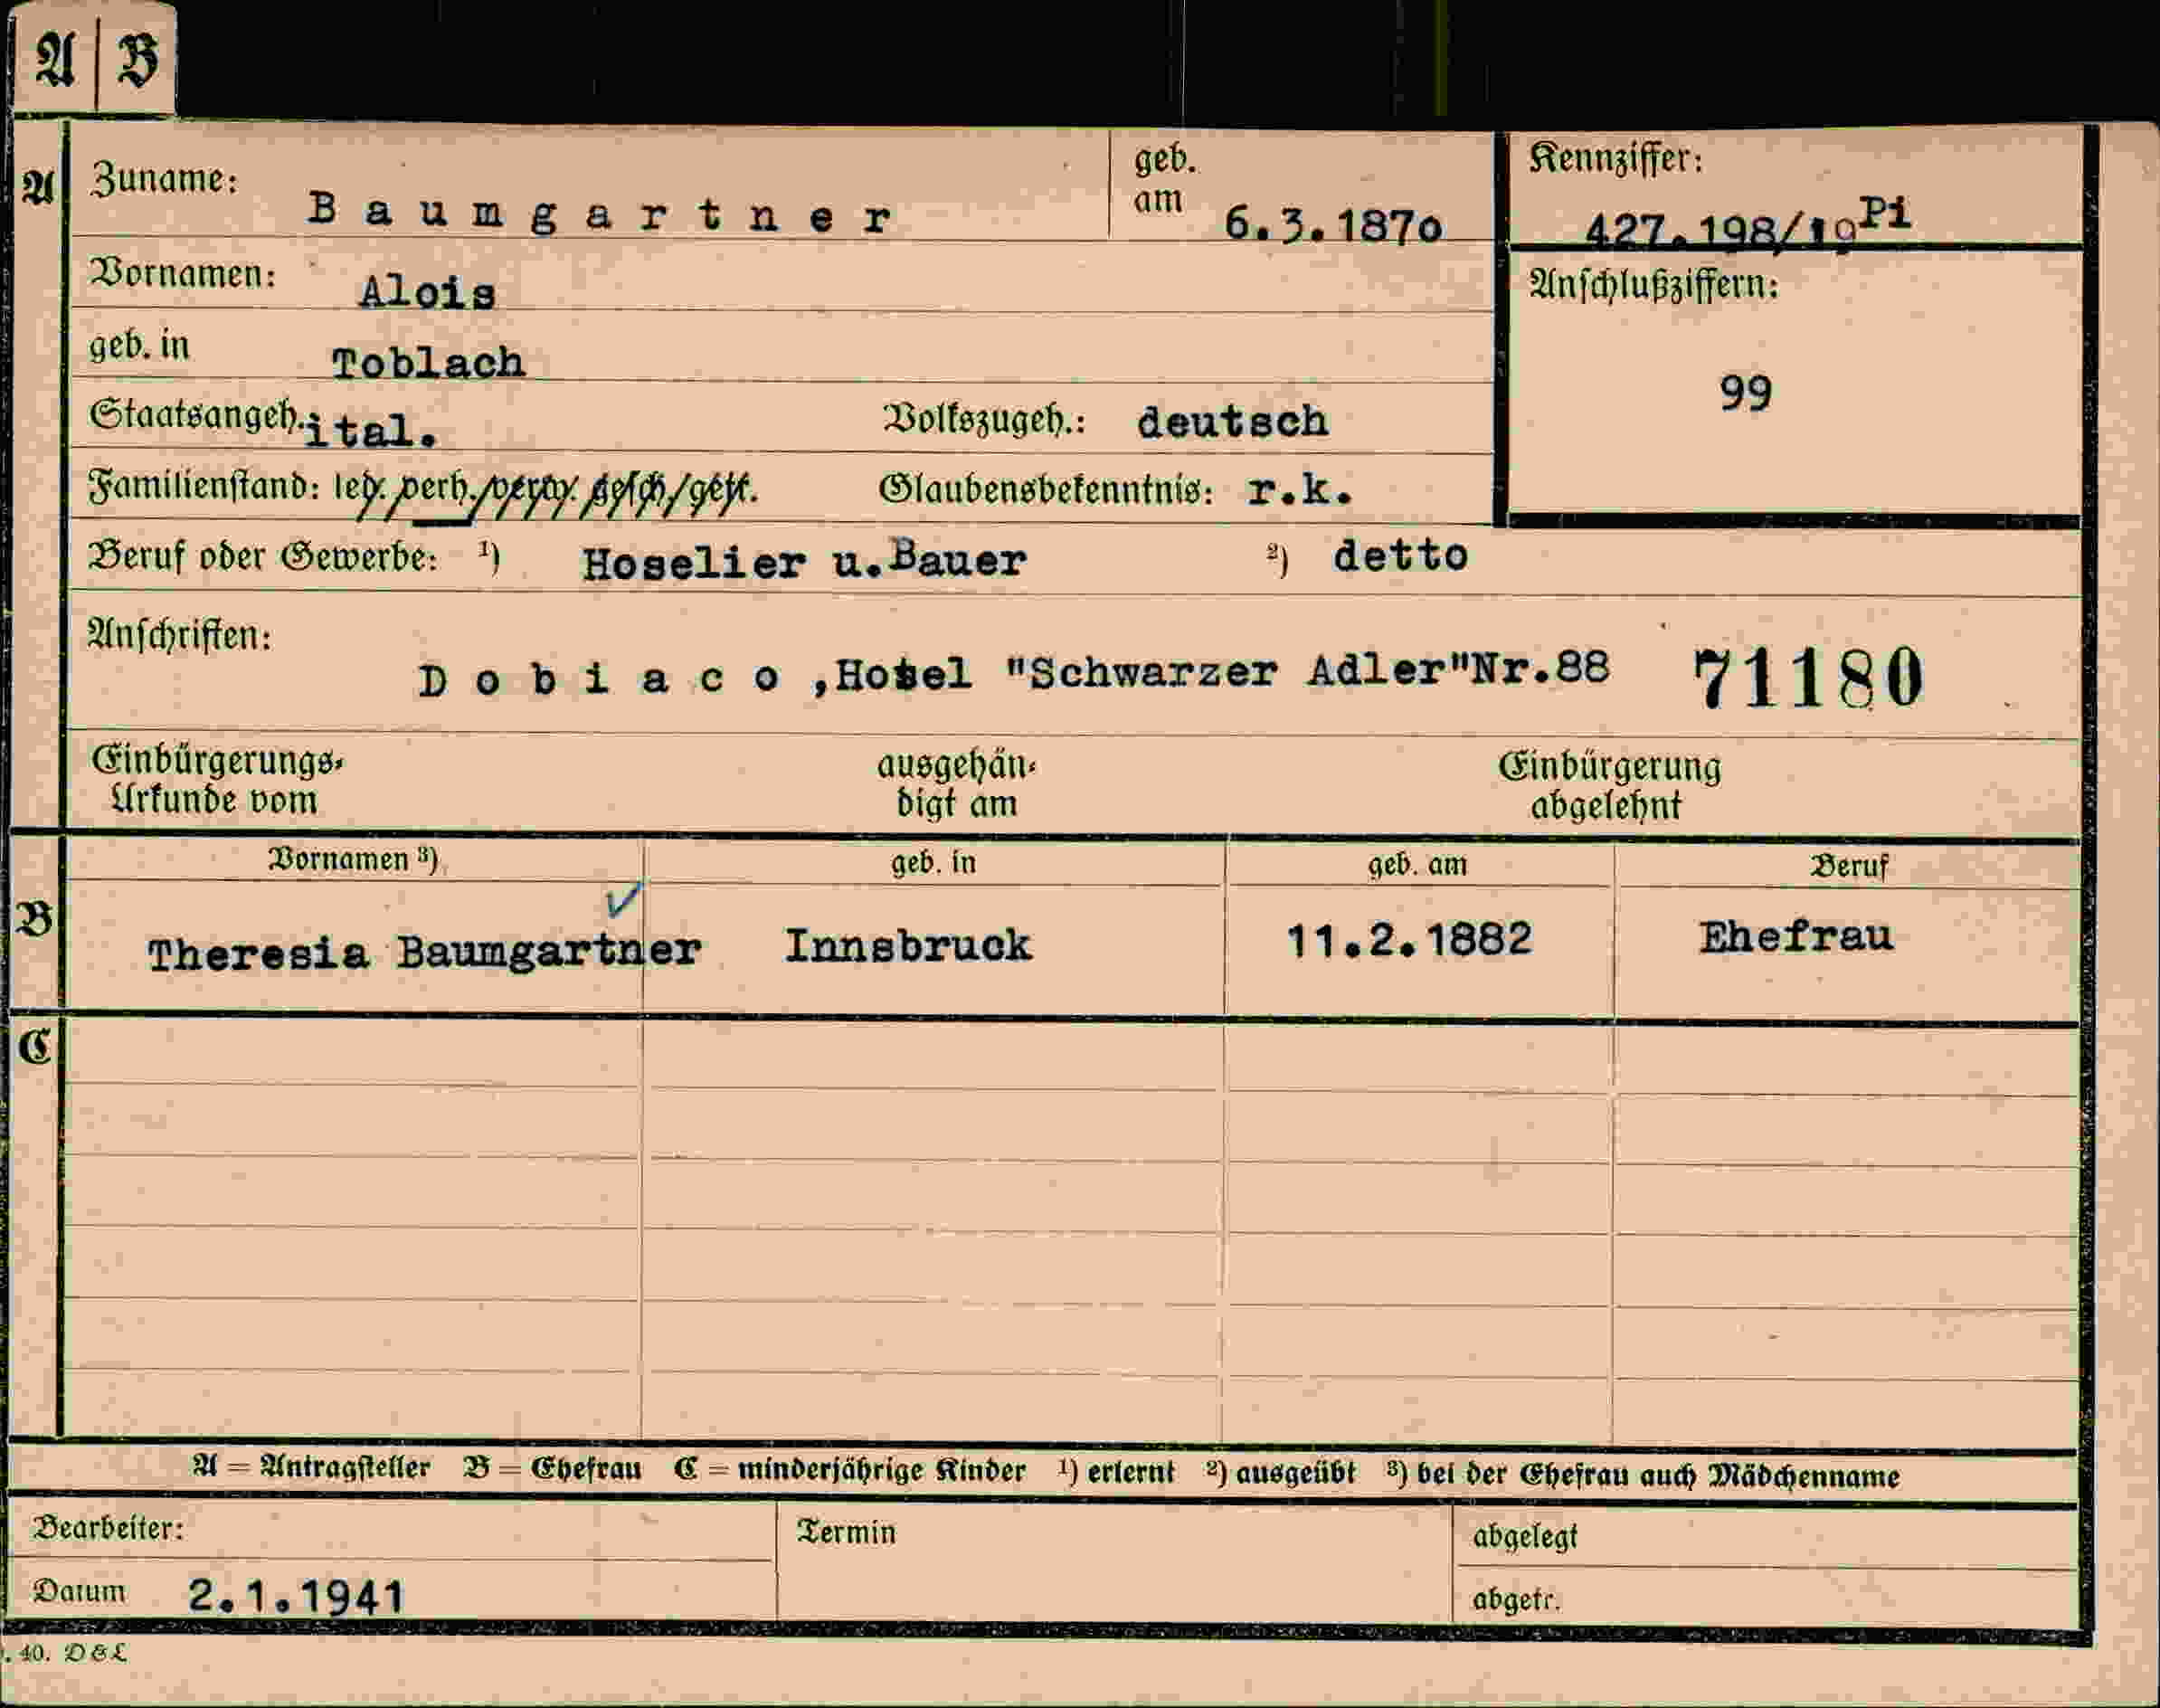 A | B
A
Zuname: Baumgartner
geb. am 6.3.1870
Kennziffer: 427.198/19Pi
Vornamen: Alois
Anschlußziffern: 99
geb. in Toblach
Staatsangeh. ital. Volkszugeh.: deutsch
Familienstand: led./verh./verw./gesch./getr. Glaubensbekenntnis: r.k.
Beruf oder Gewerbe: ¹) Hoselier u.Bauer ²) detto
Anschriften: Dobiaco,Hotel "Schwarzer Adler"Nr.88 71180
Einbürgerungs-Urkunde vom
ausgehän-digt am
Einbürgerung abgelehnt
Vornamen ³) geb. in geb. am Beruf
B
Theresia Baumgartner Innsbruck 11.2.1882 Ehefrau
C
A = Antragsteller B = Ehefrau C = minderjährige Kinder ¹) erlernt ²) ausgeübt ³) bei der Ehefrau auch Mädchenname
Bearbeiter: Termin abgelegt
Datum 2.1.1941 abgetr.
. 40. D&L